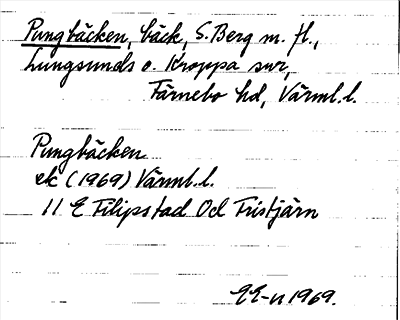 Pungbäcken, bäck, S. Berg m. fl.,
Lungsunds o. Kroppa snr,
Färnebo hd, Värml. l.
Pungbäcken
ek (1969) Värml. l.
11 E Filipstad Od Fristjärn
EE-n 1969.